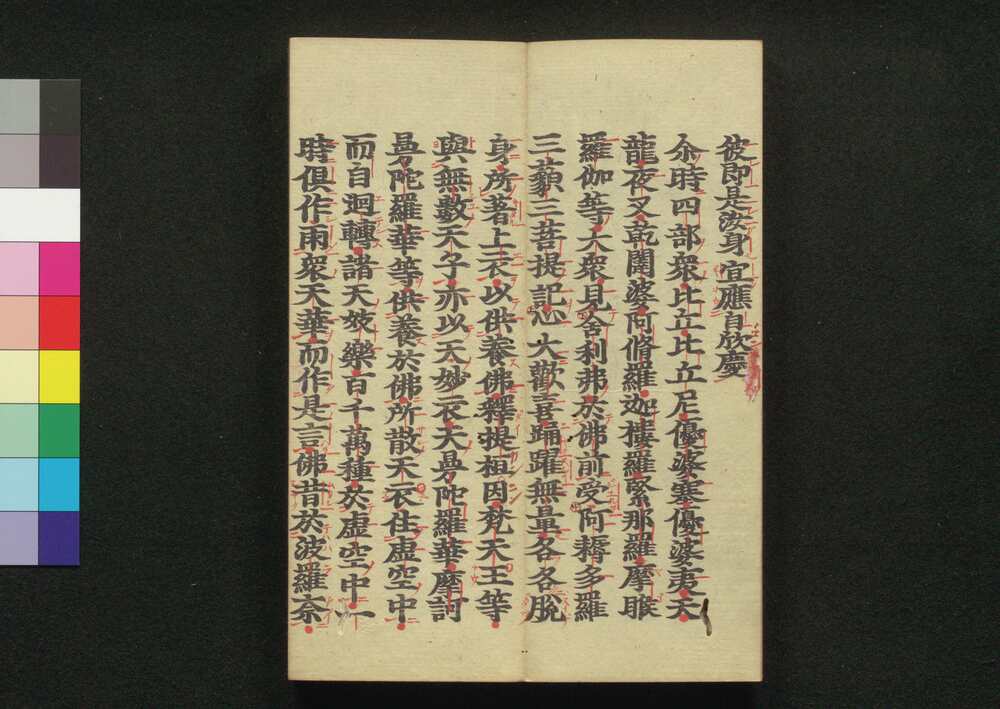 彼即是汝身宜應自欣慶
尒時四部衆比丘比丘尼優婆塞優婆夷天
龍夜叉乾闥婆阿脩羅迦樓羅緊那羅摩睺
羅伽等大衆見舎利弗於佛前受阿耨多羅
三藐三菩提記心大歡喜踊躍無量各各脫
身所著上衣以供養佛釋提桓因梵天王等
與無數天子亦以天妙衣天曼陀羅華摩訶
曼陀羅華等供養於佛所散天衣住虛空中
而自迴轉諸天妓樂百千萬種於虛空中一
時俱作雨衆天華而作是言佛昔於波羅奈